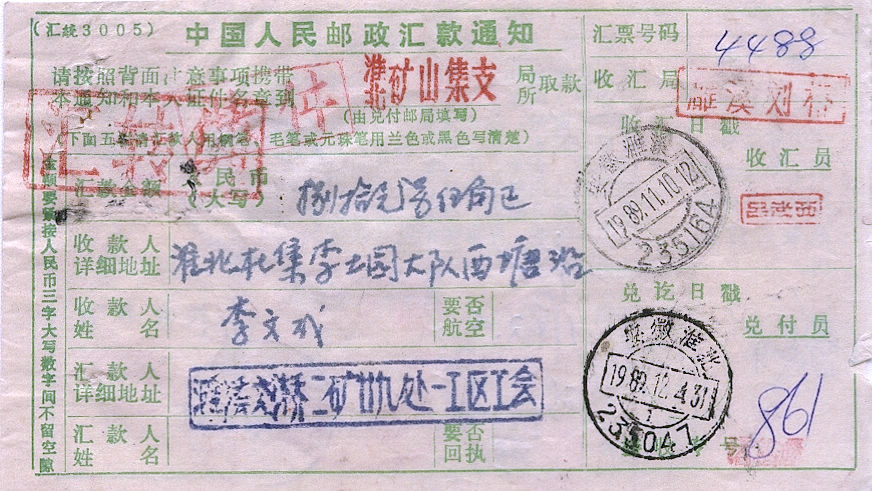 (汇统3005)
中国人民邮政汇款通知
请按照背面注意事项携带
本通知和本人证件名章到
淮北矿山集支
局
所
取款
(由兑付邮局填写)
(下面五栏请汇款人用钢笔、毛笔或元珠笔用兰色或黑色写清楚)
汇票号码
4488
收汇局
濉溪刘桥
收汇日戳
安徽濉溪
1989.11.10.12
235164
收汇员
汇款金额
人民币
(大写)
捌拾元
收款人
详细地址
淮北杜集李土园大队西塘
收款人
姓名
李文成
要否
航空
兑讫日戳
兑付员
安徽淮北
1989.12.4.31
1
235047
汇款人
详细地址
濉溪刘桥二矿廿九处一工区工会
汇款人
姓名
要否
回执
号
861
金额要紧接人民币三字大写数字间不留空隙